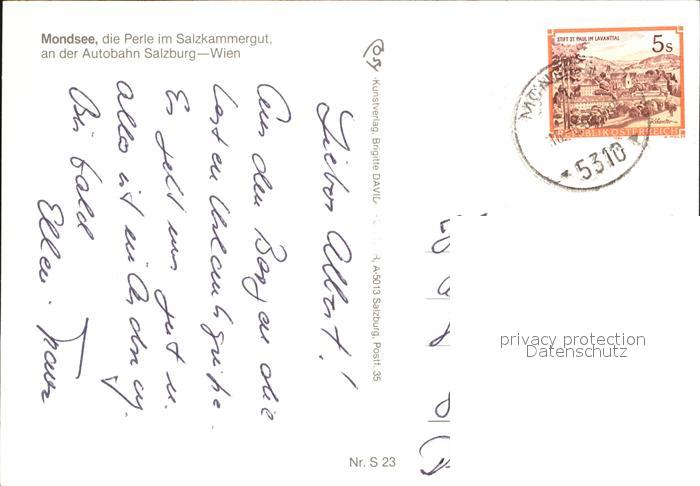 Mondsee, die Perle im Salzkammergut,
an der Autobahn Salzburg—Wien
Cosy-Kunstverlag, Brigitte DAVID A-5013 Salzburg, Postf. 35
Lieber Albert!
Aus den Bergen die
besten Urlaubsgrüße.
Es geht uns gut u.
alles ist in Ordnung.
Bis bald
Ellen · Franz
STIFT ST. PAUL IM LAVANTTAL
5 S
REPUBLIK ÖSTERREICH
MONDSEE
5310
privacy protection
Datenschutz
Nr. S 23